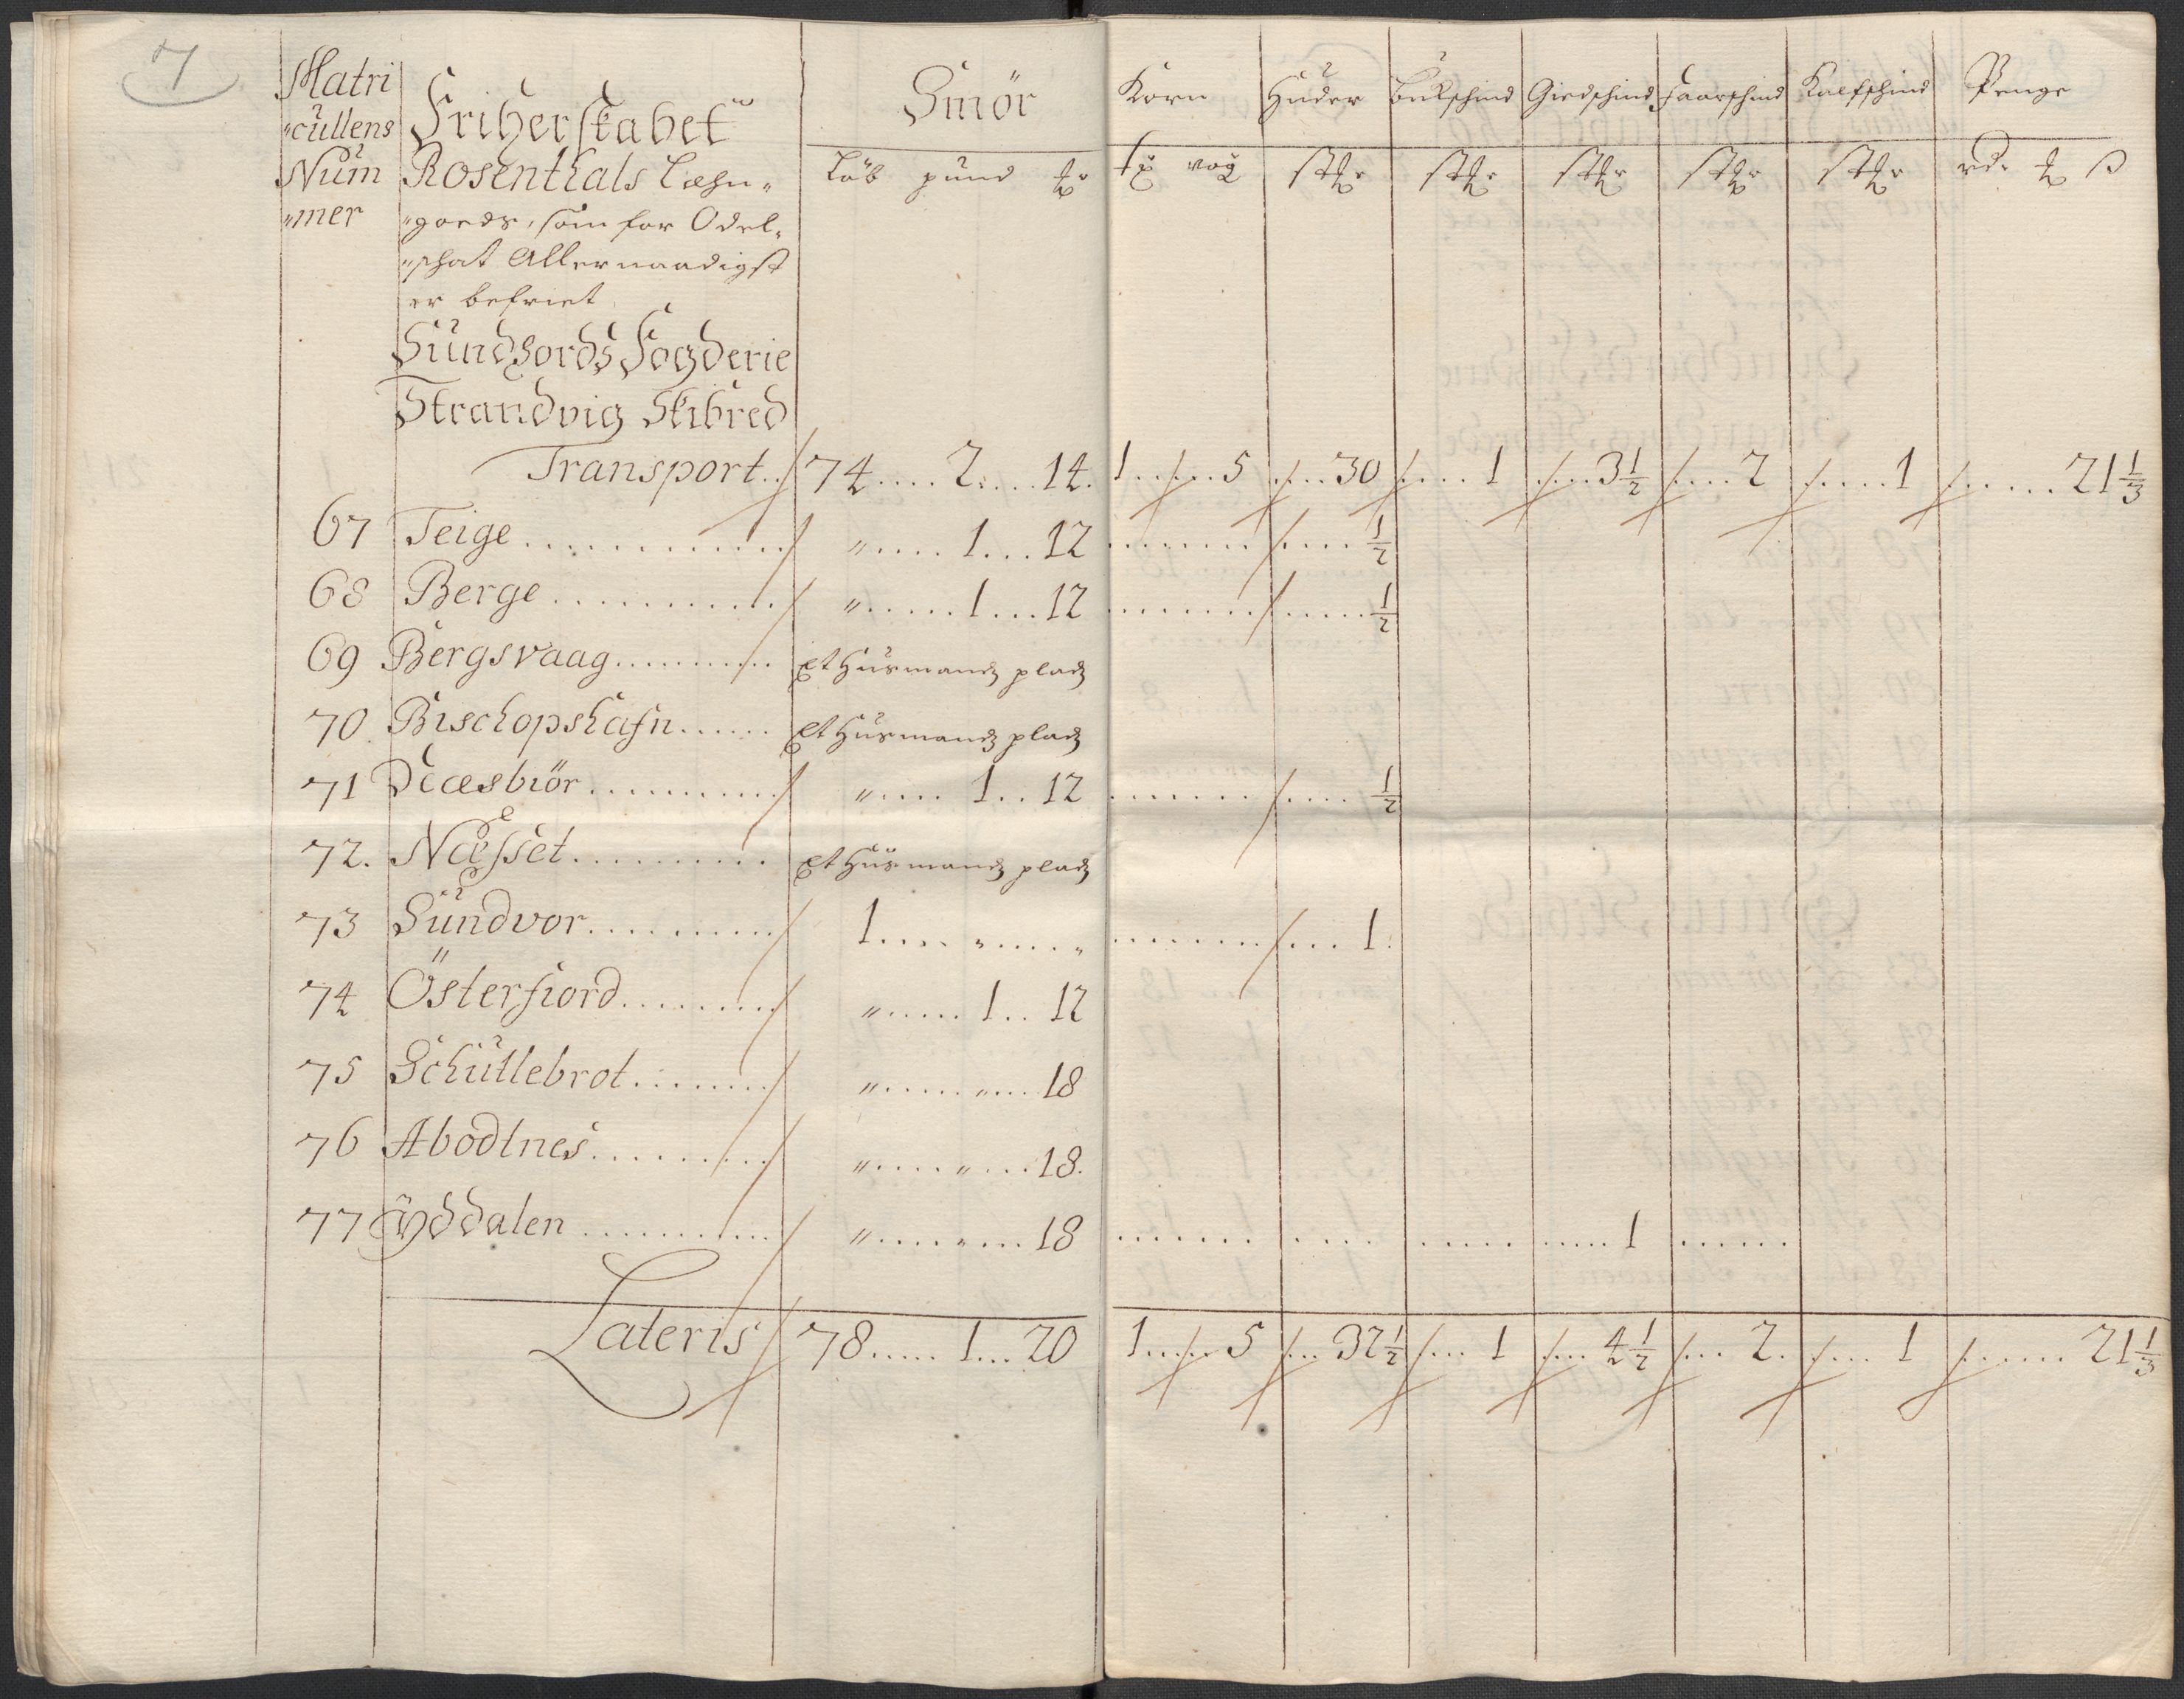 7
Matri
"cullens
Num
"mer
Friherskabet
Rosenthals Læhn"
"goeds, som for Odel"
"schat Allernaadigst
er befriet
Sundhords Fogderie
Strandvig Skibred
Smör
Löb pund
Korn
Huder
Bukschind
Giedschind
Faarschind
Kalfschind
Penge
vog
rd. ß
Transport.. 74.... 2.... 14. 1.....5 .... 30 .... 1 .... 3 1/2 .... 2 ..... 1 ...... 21 1/3
67 Teige ............ " ..... 1... 12 ........ .... 1/2
68 Berge ............ " ...... 1... 12 ........ ..... 1/2
69 Bergsvaag........... Et Husmandz pladz
70 Bischopshafn...... Et Husmandz pladz
71 Diæsbiör........... " .... 1.. 12 ........ .... 1/2
72. Næsset........... Et Husmandz pladz
73 Sundvor.......... 1.... " ..... " ........ ... 1.
74 Österfiord......... " ..... 1.. 12
75 Schutlebrot........ " ..... " .... 18
76 Abodtnes.......... " .... " .... 18.
77 Ÿddalen ........... " .... " .... 18 ....... .... ..... ..... 1 ......
Lateris 78..... 1... 20 1..... 5 ... 32 1/2 ... 1 ... 4 1/2 ... 2. .... 1 ...... 21 1/3